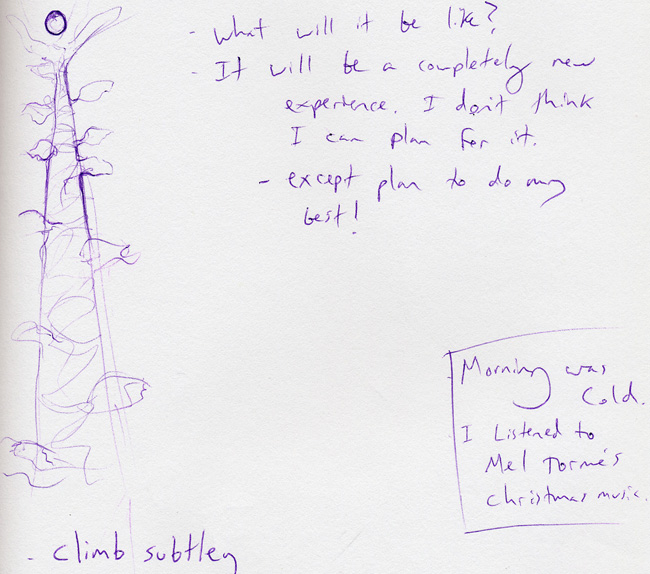 - What will it be like?
- It will be a completely new
experience. I don't think
I can plan for it.
- except plan to do my
best!
Morning was
Cold.
I Listened to
Mel Tormé's
christmas music.
- climb subtley